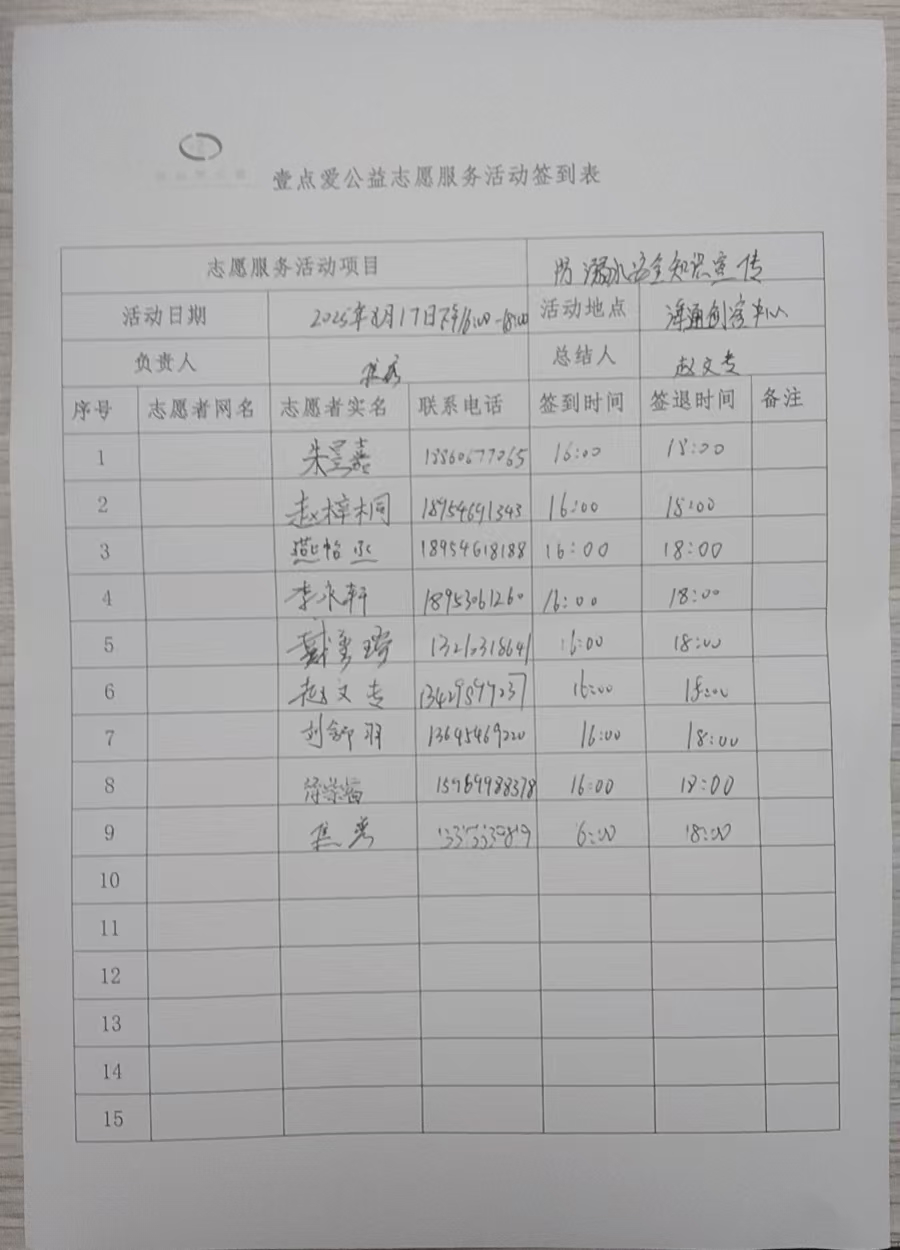 壹点爱公益志愿服务活动签到表
志愿服务活动项目 防溺水安全知识宣传
活动日期 2025年8月17日下午16:00-18:00 活动地点 泽通创客中心
负责人 总结人 赵文专
序号 志愿者网名 志愿者实名 联系电话 签到时间 签退时间 备注
1 朱昱嘉 13860677065 16:00 18:00
2 赵梓桐 18954691343 16:00 18:00
3 燕怡丞 18954618188 16:00 18:00
4 李永轩 18953061260 16:00 18:00
5 16:00 18:00
6 赵文专 16:00 18:00
7 刘舒羽 13645469220 16:00 18:00
8 15969988378 16:00 18:00
9 6:00 18:00
10
11
12
13
14
15